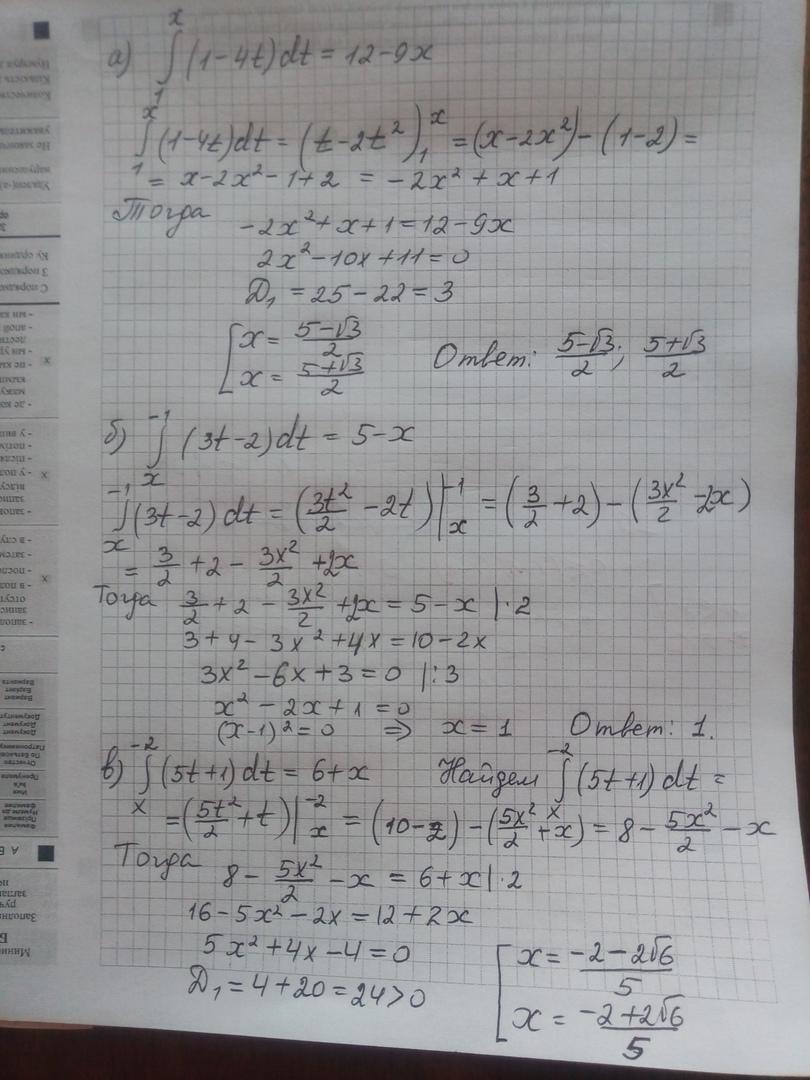 а) ∫₁ˣ (1-4t)dt = 12-9x
∫₁ˣ (1-4t)dt = (t-2t²)₁ˣ = (x-2x²) - (1-2) =
= x-2x²-1+2 = -2x²+x+1
Тогда -2x²+x+1 = 12-9x
2x²-10x+11=0
D₁ = 25-22 = 3
[x = (5-√3)/2
[x = (5+√3)/2
Ответ: (5-√3)/2; (5+√3)/2
б) ∫ₓ⁻¹ (3t-2)dt = 5-x
∫ₓ⁻¹ (3t-2)dt = (3t²/2 - 2t)|ₓ⁻¹ = (3/2+2) - (3x²/2 - 2x)
= 3/2 + 2 - 3x²/2 + 2x
Тогда 3/2 + 2 - 3x²/2 + 2x = 5-x |·2
3+4-3x²+4x = 10-2x
3x²-6x+3=0 |:3
x²-2x+1=0
(x-1)²=0 ⇒ x=1 Ответ: 1.
в) ∫ₓ⁻² (5t+1)dt = 6+x Найдем ∫ₓ⁻² (5t+1)dt =
= (5t²/2 + t)|ₓ⁻² = (10-2) - (5x²/2 + x) = 8 - 5x²/2 - x
Тогда 8 - 5x²/2 - x = 6+x |·2
16-5x²-2x = 12+2x
5x²+4x-4=0
D₁ = 4+20 = 24>0
[x = (-2-2√6)/5
[x = (-2+2√6)/5